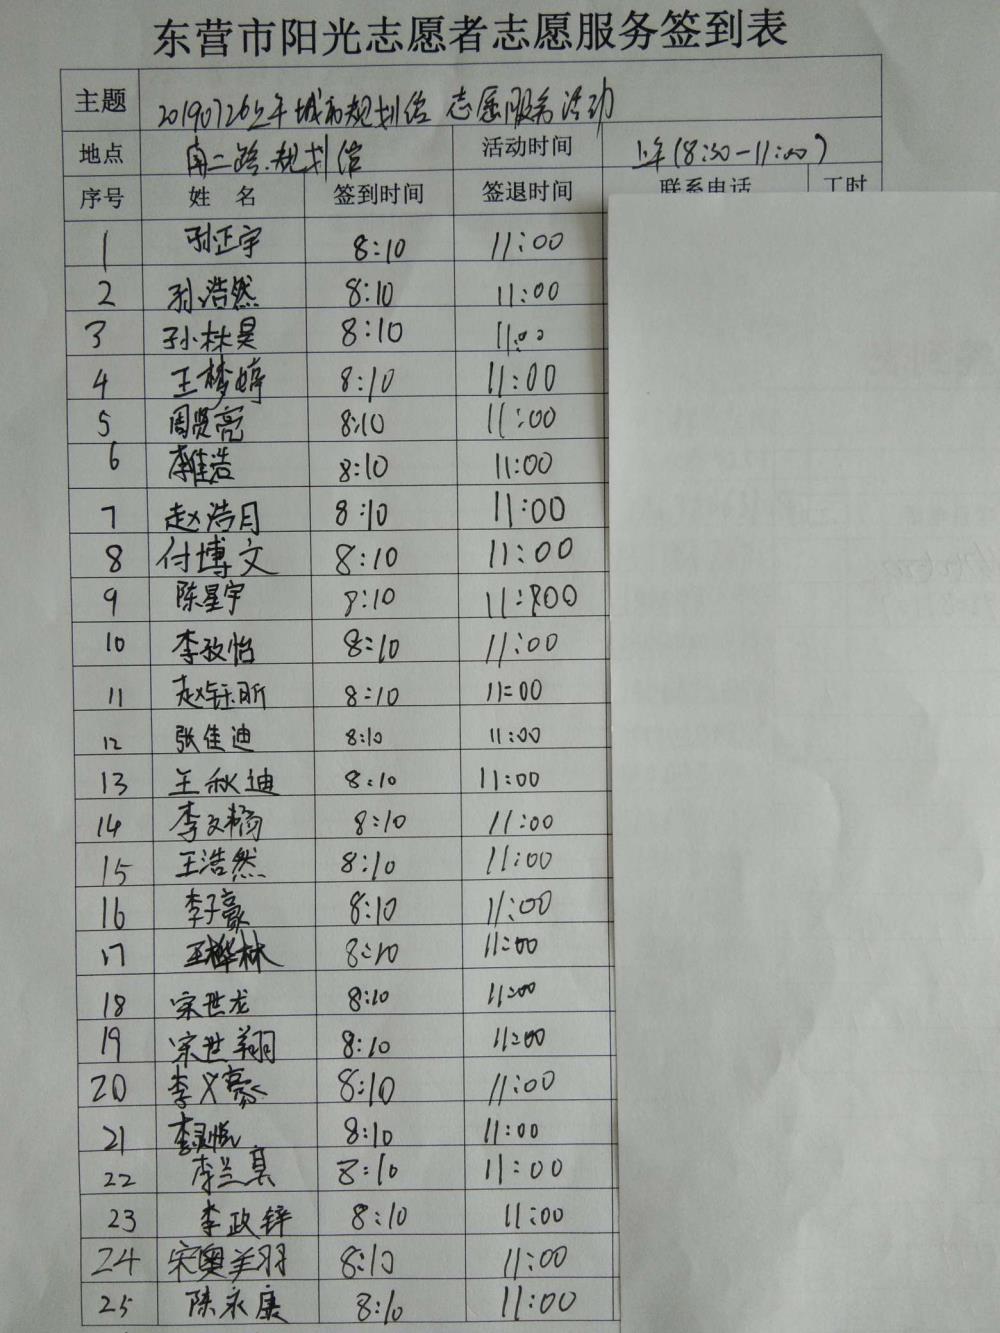 东营市阳光志愿者志愿服务签到表
主题 20190726上午城市规划馆 志愿服务活动
地点 南二路.规划馆 活动时间 上午(8:30-11:00)
序号 姓名 签到时间 签退时间 联系电话 工时
1 孙正宇 8:10 11:00
2 孙浩然 8:10 11:00
3 孙林昊 8:10 11:00
4 王梦婷 8:10 11:00
5 周贤亮 8:10 11:00
6 李佳浩 8:10 11:00
7 赵浩月 8:10 11:00
8 付博文 8:10 11:00
9 陈星宇 8:10 11:00
10 李孜怡 8:10 11:00
11 赵钰昕 8:10 11:00
12 张佳迪 8:10 11:00
13 王秋迪 8:10 11:00
14 李文杨 8:10 11:00
15 王浩然 8:10 11:00
16 李子豪 8:10 11:00
17 王桦林 8:10 11:00
18 宗世龙 8:10 11:00
19 宗世翔 8:10 11:00
20 李义豪 8:10 11:00
21 8:10 11:00
22 李兰真 8:10 11:00
23 李政锌 8:10 11:00
24 宋奥翔 8:10 11:00
25 陈永康 8:10 11:00